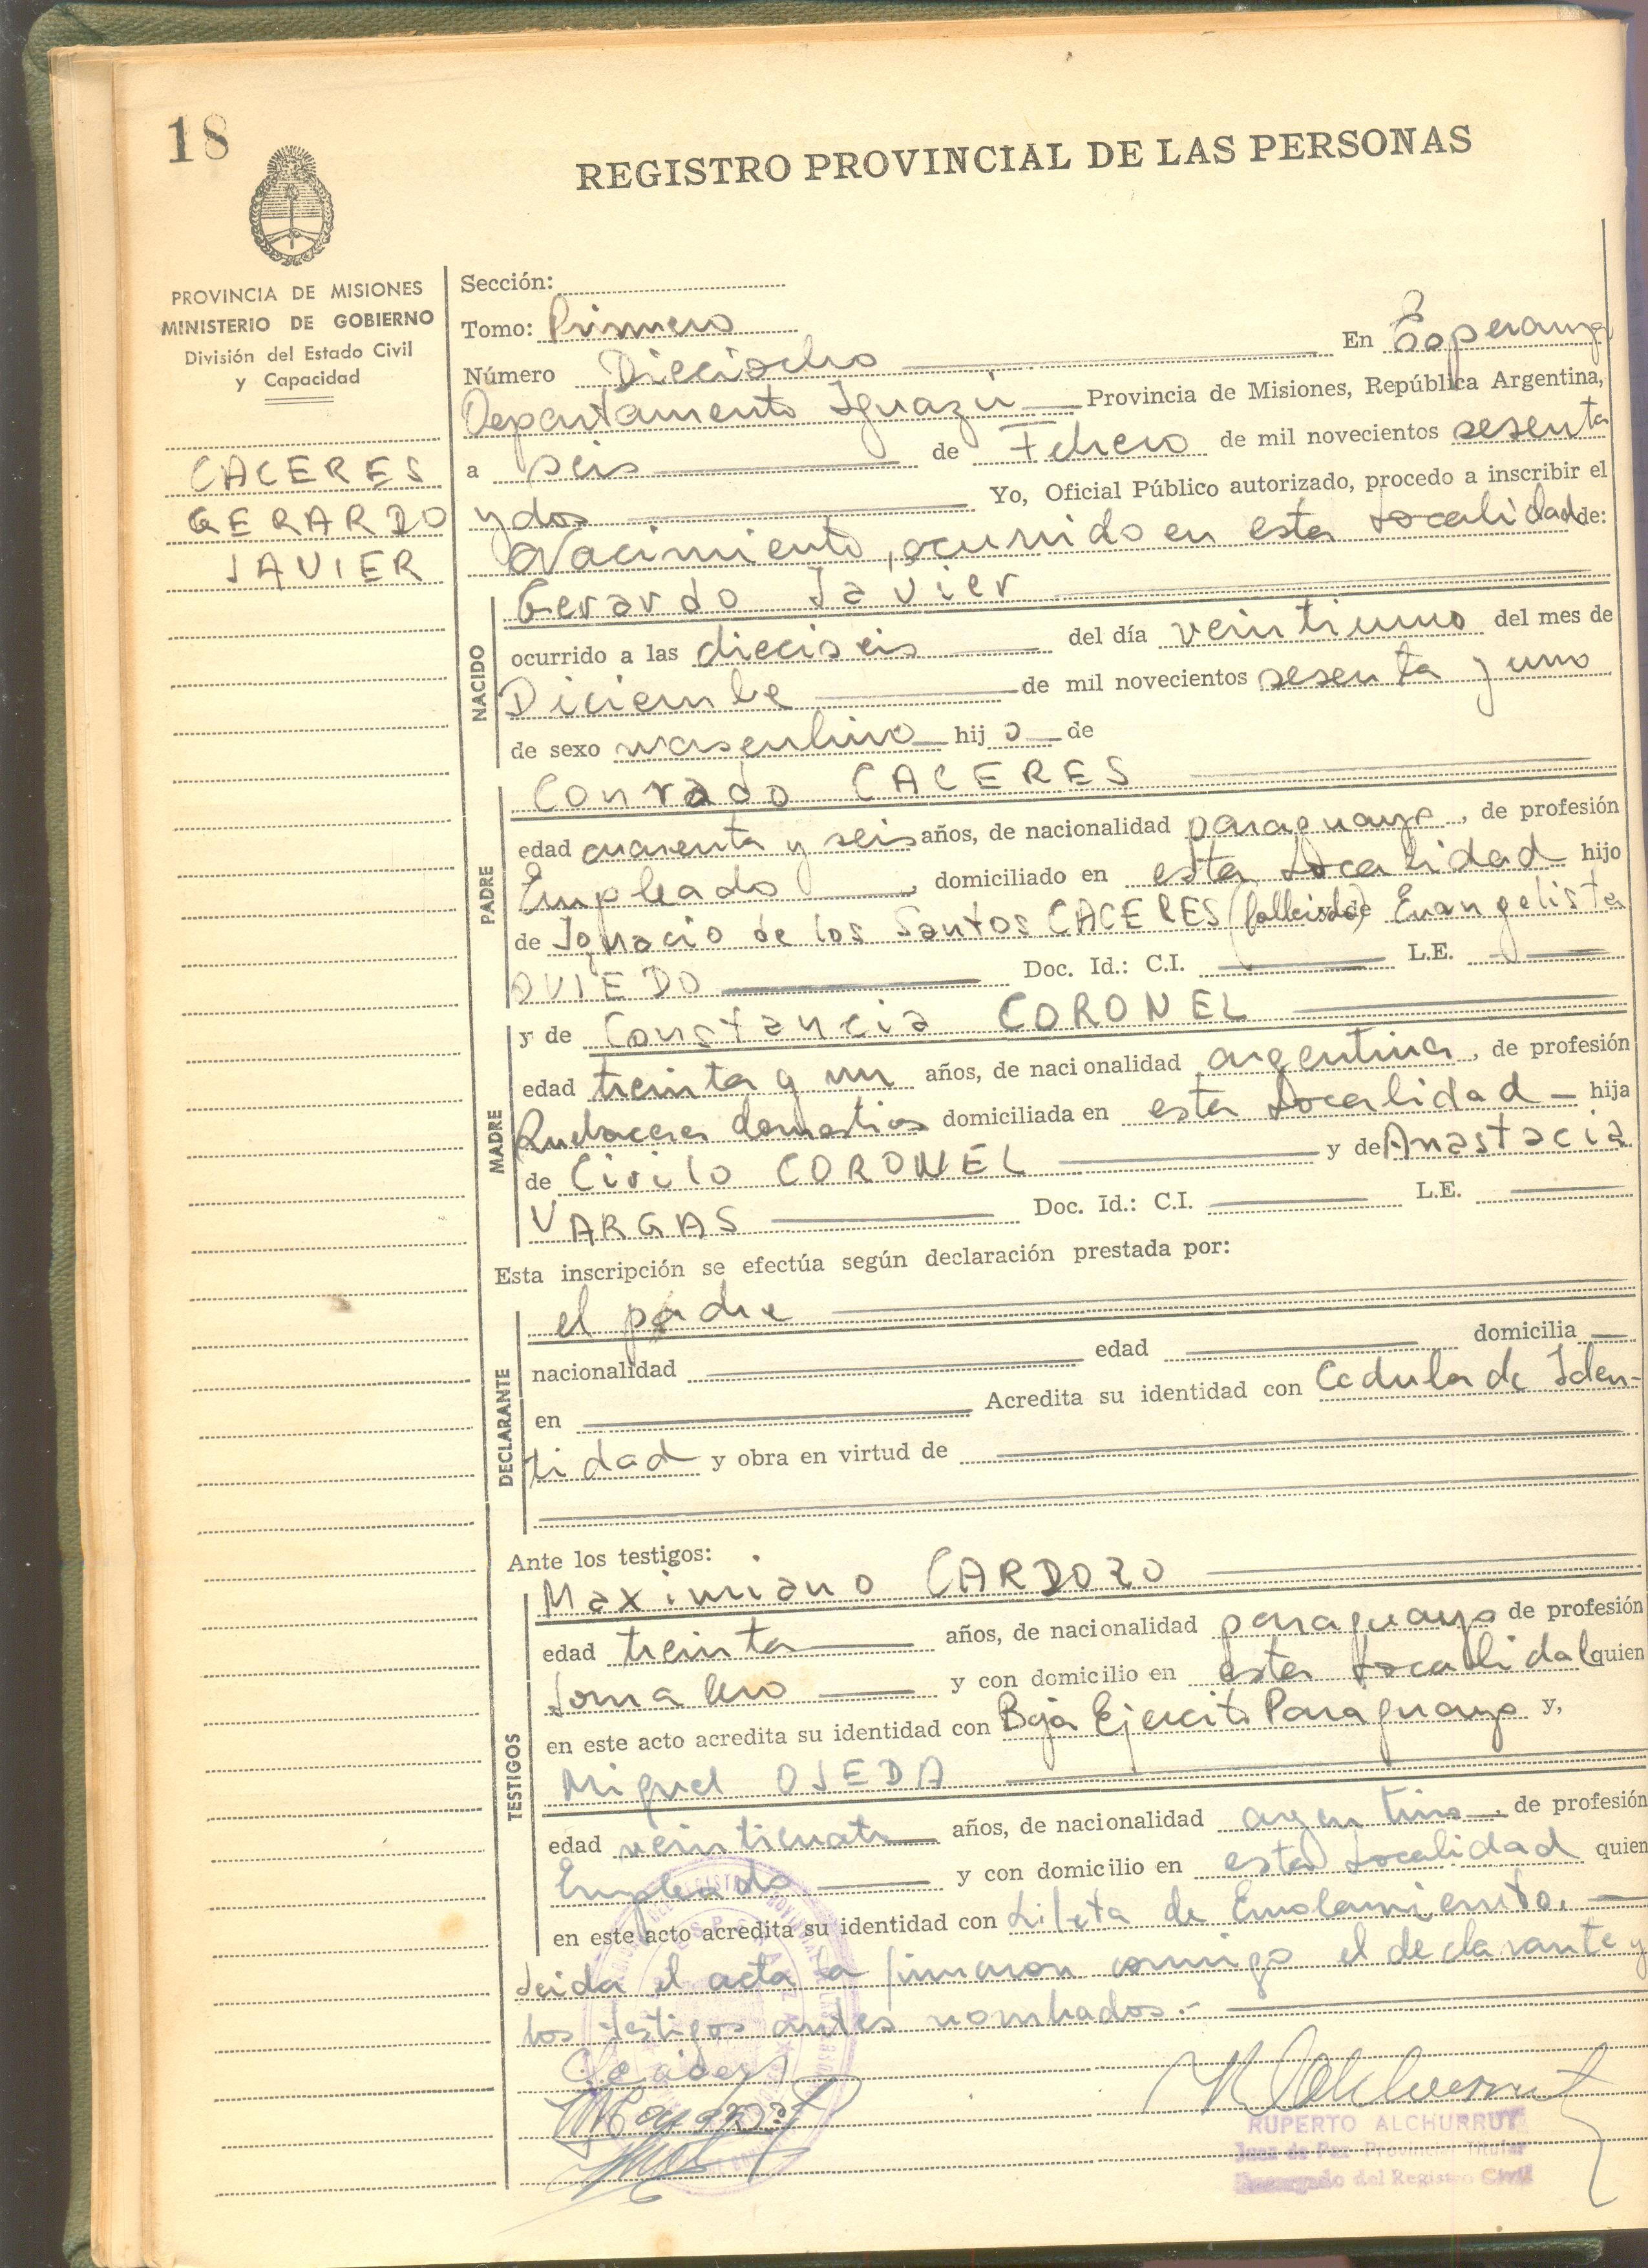 18
REGISTRO PROVINCIAL DE LAS PERSONAS
PROVINCIA DE MISIONES
MINISTERIO DE GOBIERNO
División del Estado Civil
y Capacidad
CACERES
GERARDO
JAVIER
Sección:
Tomo: Primero
Número Dieciocho En Esperanza
Departamento Iguazú Provincia de Misiones, República Argentina,
a seis de Febrero de mil novecientos sesenta
y dos Yo, Oficial Público autorizado, procedo a inscribir el
Nacimiento, ocurrido en esta Localidad de:
NACIDO
Gerardo Javier
ocurrido a las dieciseis del día veintiuno del mes de
Diciembre de mil novecientos sesenta y uno
de sexo masculino hijo de
PADRE
Conrado CACERES
edad cuarenta y seis años, de nacionalidad paraguayo, de profesión
Empleado, domiciliado en esta Localidad hijo
de Ignacio de los Santos CACERES (fallecido) de Evangelista
OVIEDO Doc. Id.: C.I. L.E.
MADRE
y de Constancia CORONEL
edad treinta y un años, de nacionalidad argentina, de profesión
Quehaceres domesticos domiciliada en esta Localidad hija
de Cirilo CORONEL y de Anastacia
VARGAS Doc. Id.: C.I. L.E.
Esta inscripción se efectúa según declaración prestada por:
DECLARANTE
el padre
nacionalidad edad domicilia
en Acredita su identidad con Cedula de Iden-
tidad y obra en virtud de
Ante los testigos:
TESTIGOS
Maximiano CARDOZO
edad treinta años, de nacionalidad paraguayo de profesión
Jornalero y con domicilio en esta Localidad quien
en este acto acredita su identidad con Baja Ejercito Paraguayo y,
Miguel OJEDA
edad veinticuatro años, de nacionalidad argentino, de profesión
Empleado y con domicilio en esta Localidad quien
en este acto acredita su identidad con Libreta de Enrolamiento.
Leida el acta la firmaron conmigo el declarante y
los testigos antes nombrados.-
RUPERTO ALCHURRUT
Juez de Paz Provincial Titular
Encargado del Registro Civil